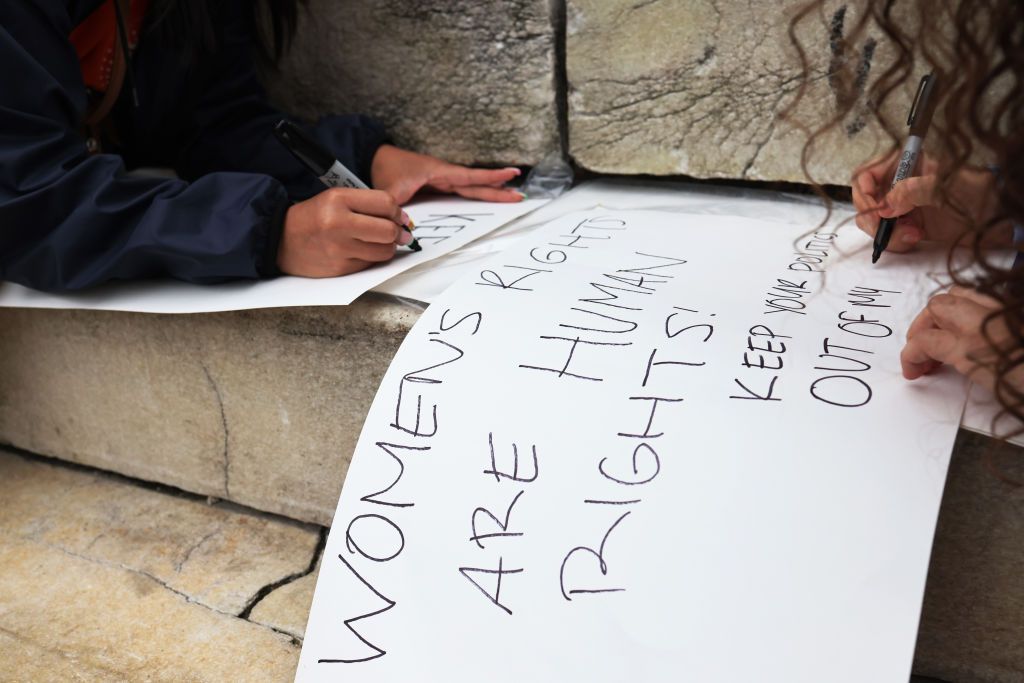 WOMEN'S RIGHTS
ARE HUMAN
RIGHTS!
KEEP YOUR
OUT OF MY
KEE